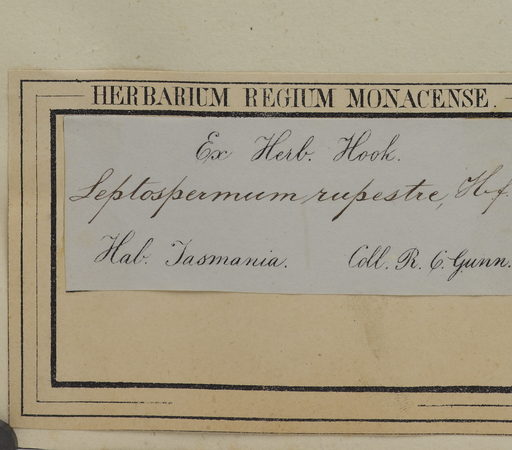 HERBARIUM REGIUM MONACENSE.
Ex Herb. Hook.
Leptospermum rupestre, Hf.
Hab. Tasmania. Coll. R. C. Gunn.